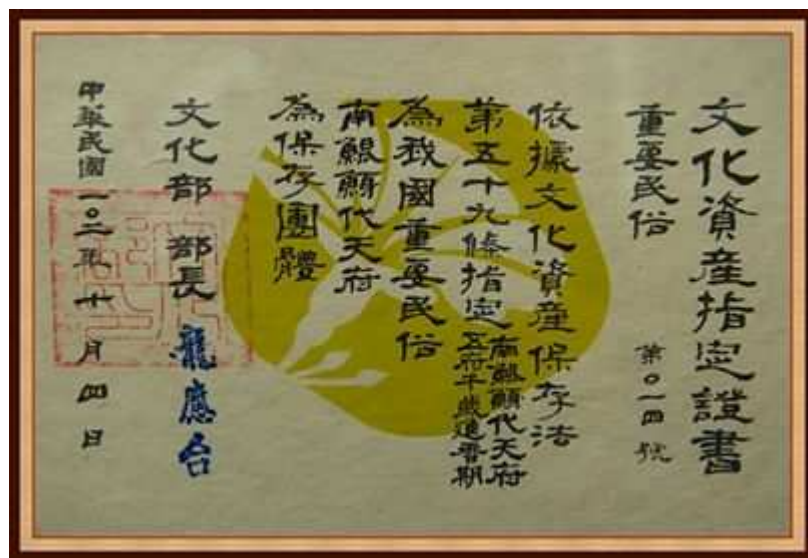 文化資產指定證書
重要民俗
第〇一四號
依據文化資產保存法
第五十九條指定
南鯤鯓代天府
五府千歲進香期
為我國重要民俗
南鯤鯓代天府
為保存團體
文化部 部長 龍應台
中華民國一〇二年十月四日